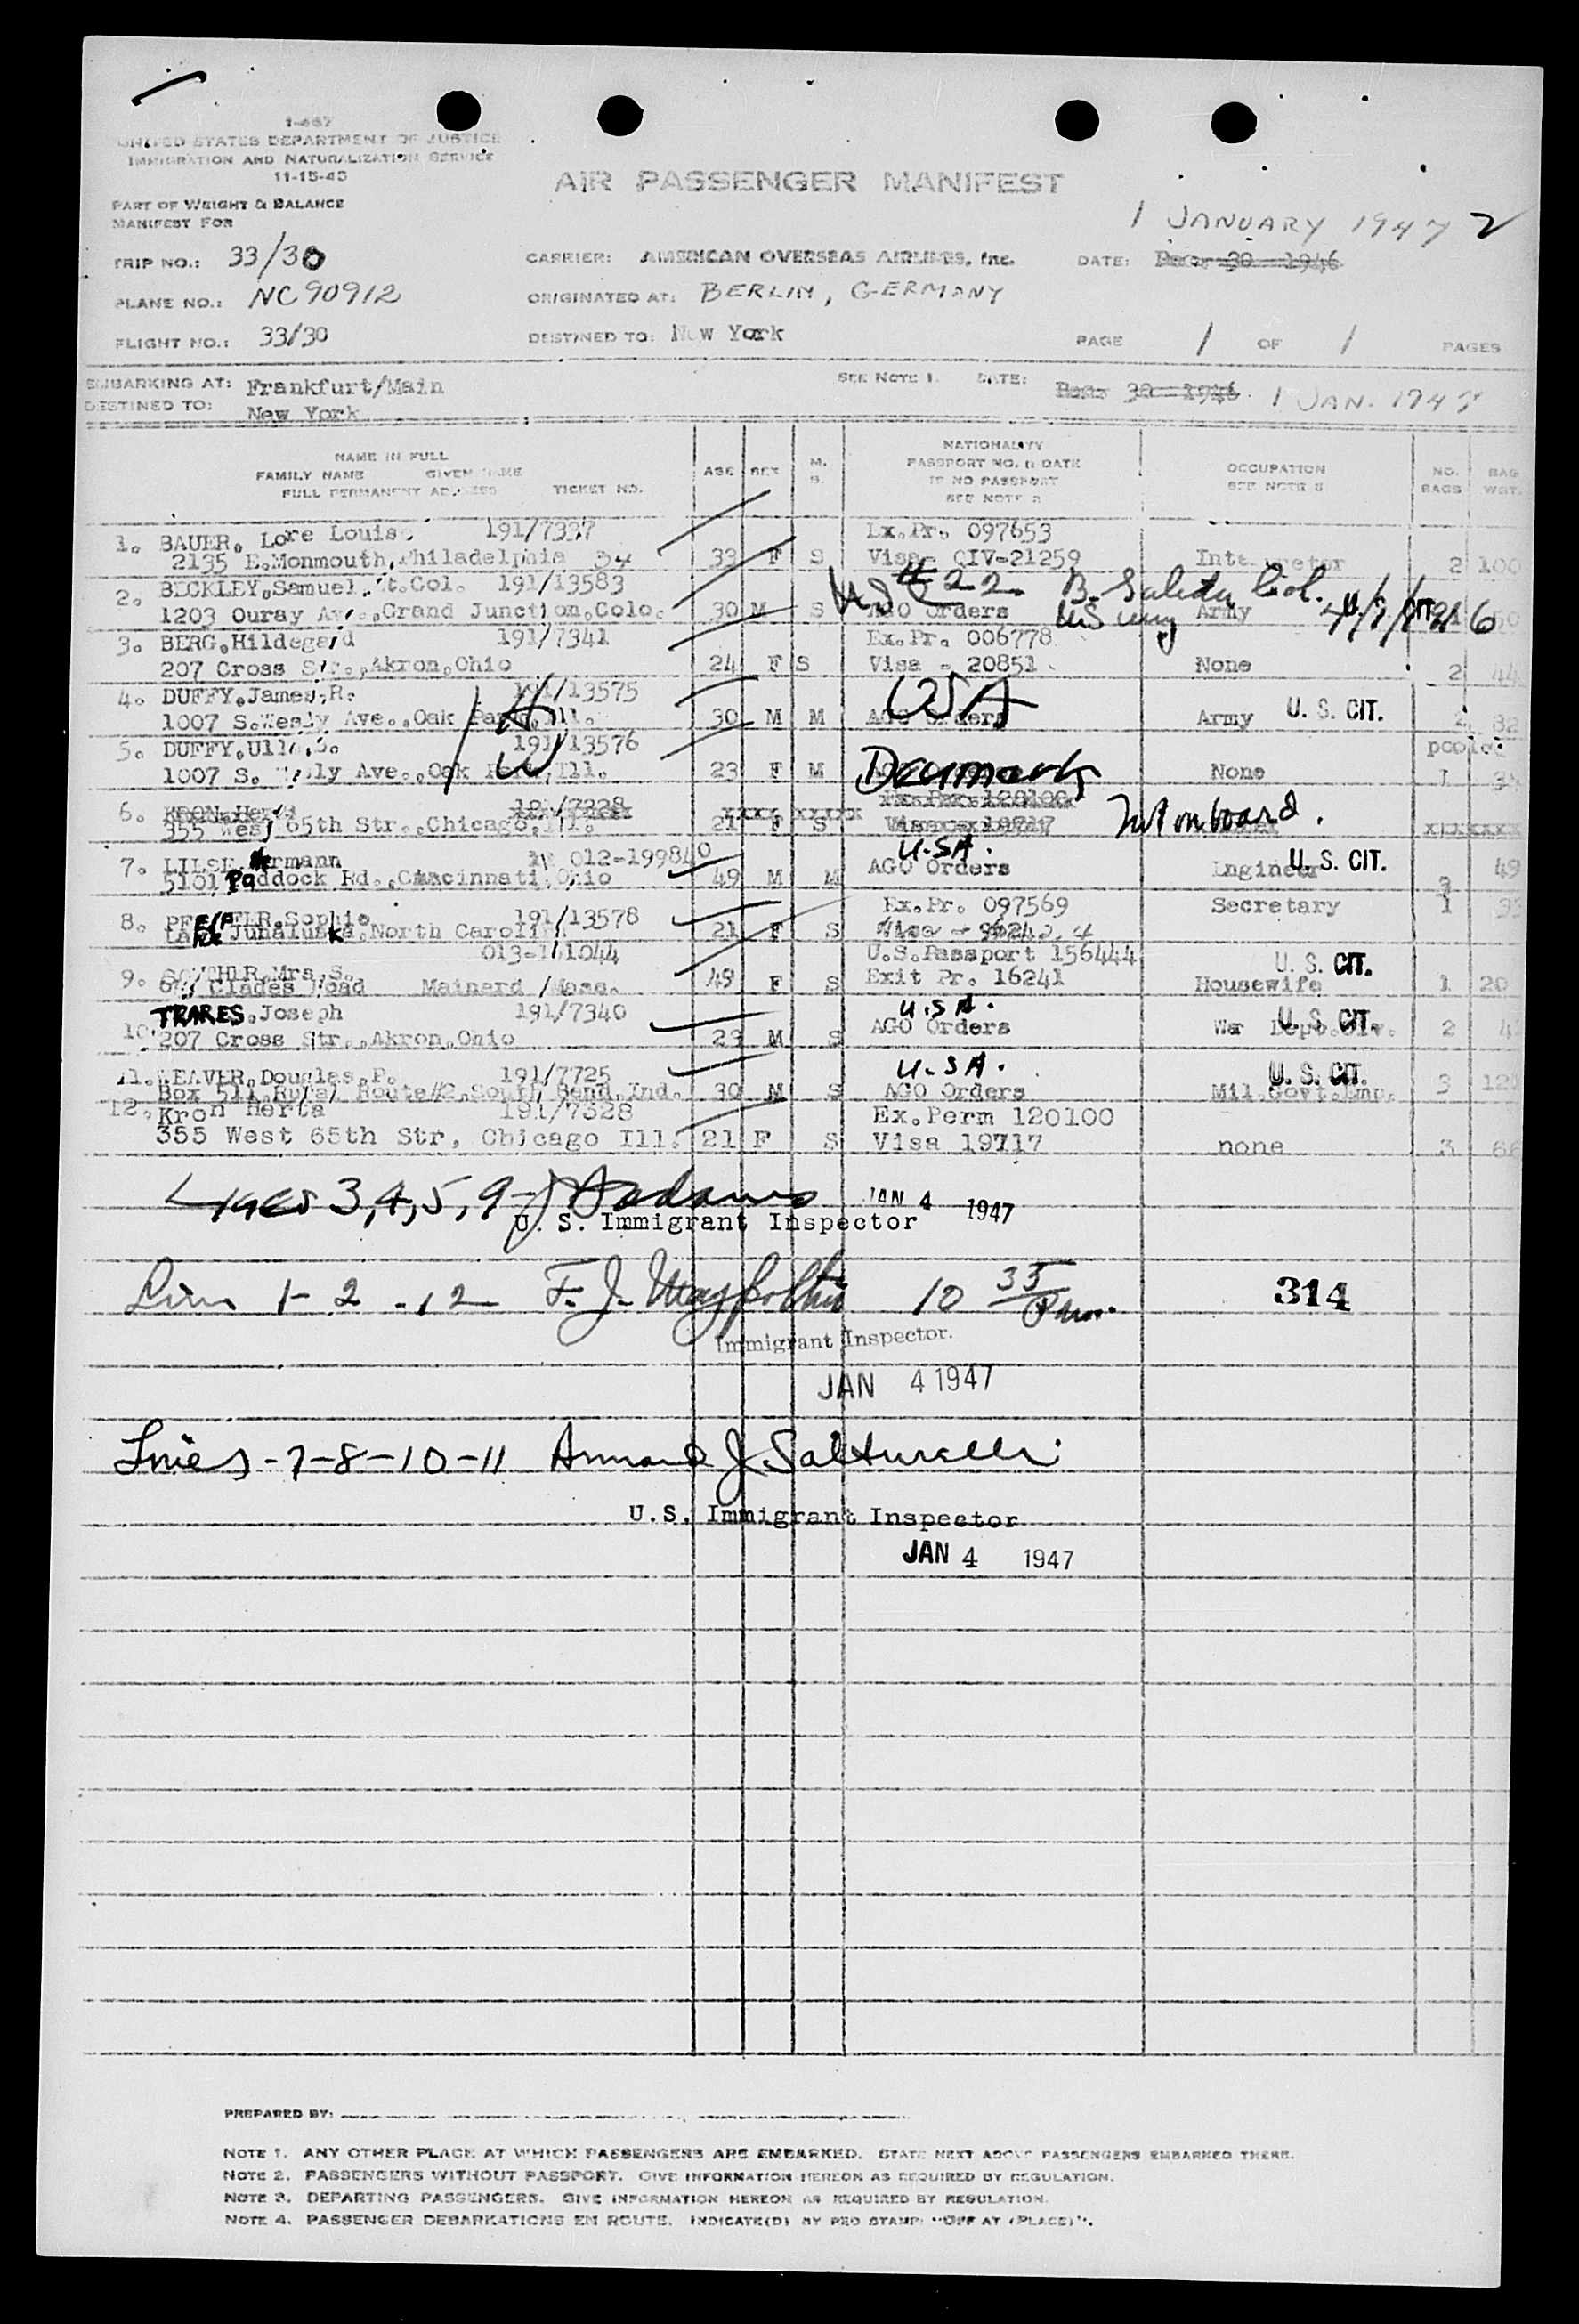 1-467
UNITED STATES DEPARTMENT OF JUSTICE
IMMIGRATION AND NATURALIZATION SERVICE
11-15-45
AIR PASSENGER MANIFEST
PART OF WEIGHT & BALANCE
MANIFEST FOR
1 JANUARY 1947 2
TRIP NO.: 33/30 CARRIER: AMERICAN OVERSEAS AIRLINES, Inc. DATE: Dec. 30 1946
PLANE NO.: NC90912 ORIGINATED AT: BERLIN, GERMANY
FLIGHT NO.: 33/30 DESTINED TO: New York PAGE 1 OF 1 PAGES
EMBARKING AT: Frankfurt/Main SEE NOTE 1. DATE: Dec. 30 1946 1 JAN. 1947
DESTINED TO: New York
NAME IN FULL
FAMILY NAME GIVEN NAME
FULL PERMANENT ADDRESS TICKET NO.
AGE SEX M. S.
NATIONALITY
PASSPORT NO. & DATE
IF NO PASSPORT
SEE NOTE 2
OCCUPATION
SEE NOTE 3
NO. BAGS
BAG WGT.
1. BAUER, Lore Louise 191/7337 Ex.Pr. 097653
2135 E.Monmouth,Philadelphia 34 33 F S Visa QIV-21259 2 100
2. BECKLEY,Samuel Lt.Col. 191/13583 22 B.
1203 Ouray Ave.,Grand Junction,Colo. 30 M S AGO Orders US Army Army U. S. CIT.
3. BERG,Hildegard 191/7341 Ex.Pr. 006778
207 Cross Str.,Akron,Ohio 24 F S Visa - 20851 None 2 44
4. DUFFY,James,R. 191/13575 USA
1007 S.Wesly Ave.,Oak Park,Ill. H 30 M M AGO Orders Army U. S. CIT. 82
5. DUFFY,Ulla 191/13576 pooled
1007 S. Wesly Ave.,Oak Park,Ill. W 23 F M Denmark None 1
6. KRON,Herta 191/7328 Ex.Per. 120100 Not onboard.
355 West 65th Str.,Chicago,Ill. 21 F S Visa 19717
7. Hermann 012-199840 U.SA.
5101 Paddock Rd.,Cincinnati,Ohio 49 M M AGO Orders Engineer U. S. CIT. 49
8. Sophie 191/13578 Ex.Pr. 097569 Secretary 1 33
Lake Junaluska,North Carolina 21 F S Visa
9. Mrs.S. 013-161044 U.S.Passport 156444 U. S. CIT.
Road Mainard Mass. 49 F S Exit Pr. 16241 Housewife 1 20
TRARES,Joseph 191/7340 U.SA.
10. 207 Cross Str.,Akron,Ohio 23 M S AGO Orders War Dept. U. S. CIT. 2
11. WEAVER,Douglas,P. 191/7725 U.SA. U. S. CIT.
Box 511,Rural Route#2,South Bend,Ind. 30 M S AGO Orders Mil.Govt.Emp. 3
12. Kron Herta 191/7328 Ex.Perm 120100
355 West 65th Str, Chicago Ill. 21 F S Visa 19717 none 3 66
Lines 3,4,5,9 Adams JAN 4 1947
U. S. Immigrant Inspector
Lines 1-2-12 F. J. 10 35 Pm.
314
Immigrant Inspector.
JAN 4 1947
Lines-7-8-10-11 Armand J. Salturelli
U.S. Immigrant Inspector
JAN 4 1947
PREPARED BY:
NOTE 1. ANY OTHER PLACE AT WHICH PASSENGERS ARE EMBARKED. STATE NEXT ABOVE PASSENGERS EMBARKED THERE.
NOTE 2. PASSENGERS WITHOUT PASSPORT. GIVE INFORMATION HEREON AS REQUIRED BY REGULATION.
NOTE 3. DEPARTING PASSENGERS. GIVE INFORMATION HEREON AS REQUIRED BY REGULATION.
NOTE 4. PASSENGER DEBARKATIONS EN ROUTE. INDICATE(D) BY RED STAMP: "OFF AT (PLACE)".